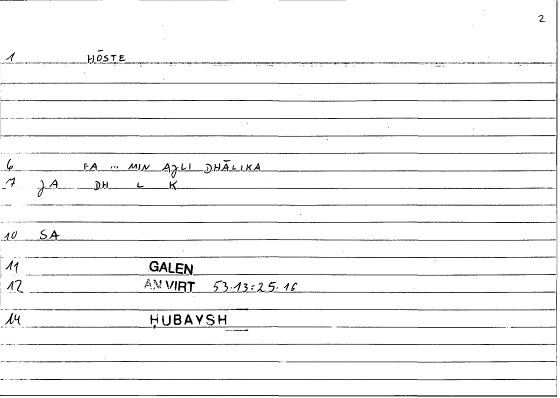 2
1 HŌSTE
6 FA ... MIN AJLI DHĀLIKA
7 JA DH L K
10 SA
11 GALEN
12 AN VIRT 53.13=25.16
14 ḤUBAYSH